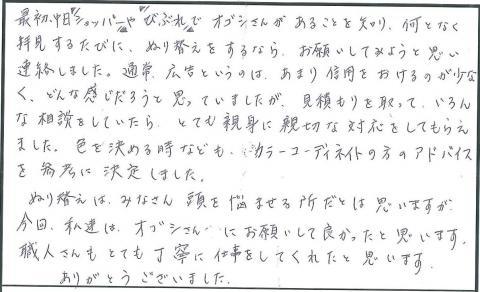 最初、中日"ショッパー"や"びぶれ"で オゴシさんが あることを知り、何となく
拝見するたびに、ぬり替えをするなら、お願いしてみようと思い
連絡しました。通常、広告というのは、あまり信用をおけるのが少な
く、どんな感じだろうと思っていましたが、見積もりを取って、いろん
な相談をしていたら、とても親身に親切な対応をしてもらえ
ました。色を決める時なども、カラーコーディネイトの方のアドバイス
を参考に決定しました。
ぬり替えは、みなさん頭を悩ませる所だとは思いますが、
今回、私達は、オゴシさんにお願いして良かったと思います。
職人さんもとても丁寧に仕事をしてくれたと思います。
ありがとうございました。